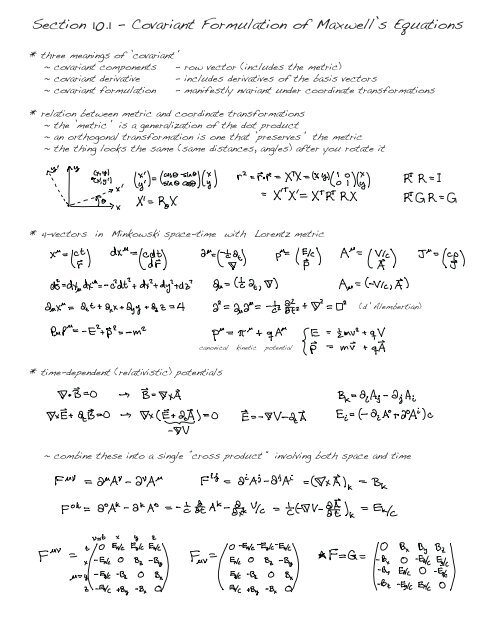 Section 10.1 - Covariant Formulation of Maxwell's Equations
* three meanings of 'covariant'
~ covariant components - row vector (includes the metric)
~ covariant derivative - includes derivatives of the basis vectors
~ covariant formulation - manifestly invariant under coordinate transformations
* relation between metric and coordinate transformations
~ the 'metric' is a generalization of the dot product
~ an orthogonal transformation is one that 'preserves' the metric
~ the thing looks the same (same distances, angles) after you rotate it
(x' y') = (cosθ -sinθ sinθ cosθ)(x y) r² = r⃗·r⃗ = XᵀX = (x y)(1 0 0 1)(x y) RᵀR = I
X' = R_θ X = X'ᵀX' = XᵀRᵀRX RᵀGR = G
* 4-vectors in Minkowski space-time with Lorentz metric
x^μ = (ct r⃗) dx^μ = (cdt dr⃗) ∂^μ = (-1/c ∂t ∇) p^μ = (E/c p⃗) A^μ = (V/c A⃗) J^μ = (cρ J⃗)
ds² = dx_μ dx^μ = -c²dt² + dx² + dy² + dz² ∂_μ = (1/c ∂t, ∇) A_μ = (-V/c, A⃗)
∂_μ x^μ = ∂t t + ∂x x + ∂y y + ∂z z = 4 ∂² = ∂_μ ∂^μ = -1/c² ∂²/∂t² + ∇² = □² (d'Alembertian)
p_μ p^μ = -E² + p⃗² = -m² p^μ = π^μ + qA^μ { E = ½mv² + qV
canonical kinetic potential p⃗ = mv⃗ + qA⃗
* time-dependent (relativistic) potentials
∇·B⃗ = 0 → B⃗ = ∇×A⃗ B_k = ∂_i A_j - ∂_j A_i
∇×E⃗ + ∂t B⃗ = 0 → ∇×(E⃗ + ∂t A⃗) = 0 E⃗ = -∇V - ∂t A⃗ E_i = (-∂_i A⁰ + ∂⁰ A^i)c
-∇V
~ combine these into a single 'cross product' involving both space and time
F^μν = ∂^μ A^ν - ∂^ν A^μ F^ij = ∂^i A^j - ∂^j A^i = (∇×A⃗)_k = B_k
F^0k = ∂⁰A^k - ∂^k A⁰ = -1/c ∂/∂t A_k - ∂/∂x_k V/c = 1/c (-∇V - ∂A⃗/∂t)_k = E_k/c
ν=t x y z
t 0 Ex/c Ey/c Ez/c 0 -Ex/c -Ey/c -Ez/c 0 Bx By Bz
F^μν = x -Ex/c 0 Bz -By F_μν = Ex/c 0 Bz -By *F = G = -Bx 0 -Ez/c Ey/c
μ=y -Ey/c -Bz 0 Bx Ey/c -Bz 0 Bx -By Ez/c 0 -Ex/c
z -Ez/c +By -Bx 0 Ez/c +By -Bx 0 -Bz -Ey/c Ex/c 0